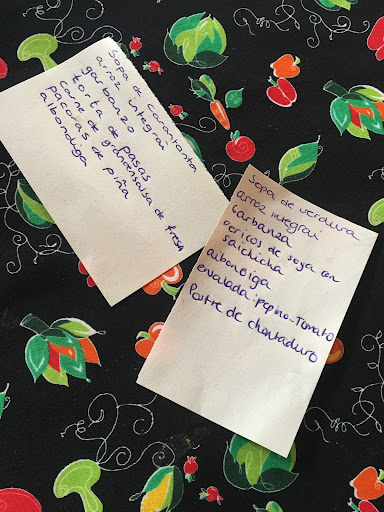 Sopa de Carantanta
arroz integral
garbanzo
torta de pasas
Carne de granensalsa de fresa
paccaras de piña
albondiga
Sopa de verdura
arroz integral
Garbanza
pericos de soya con
salchicha
albondiga
ensalada: Pepino-Tomate
Postre de chontaduro